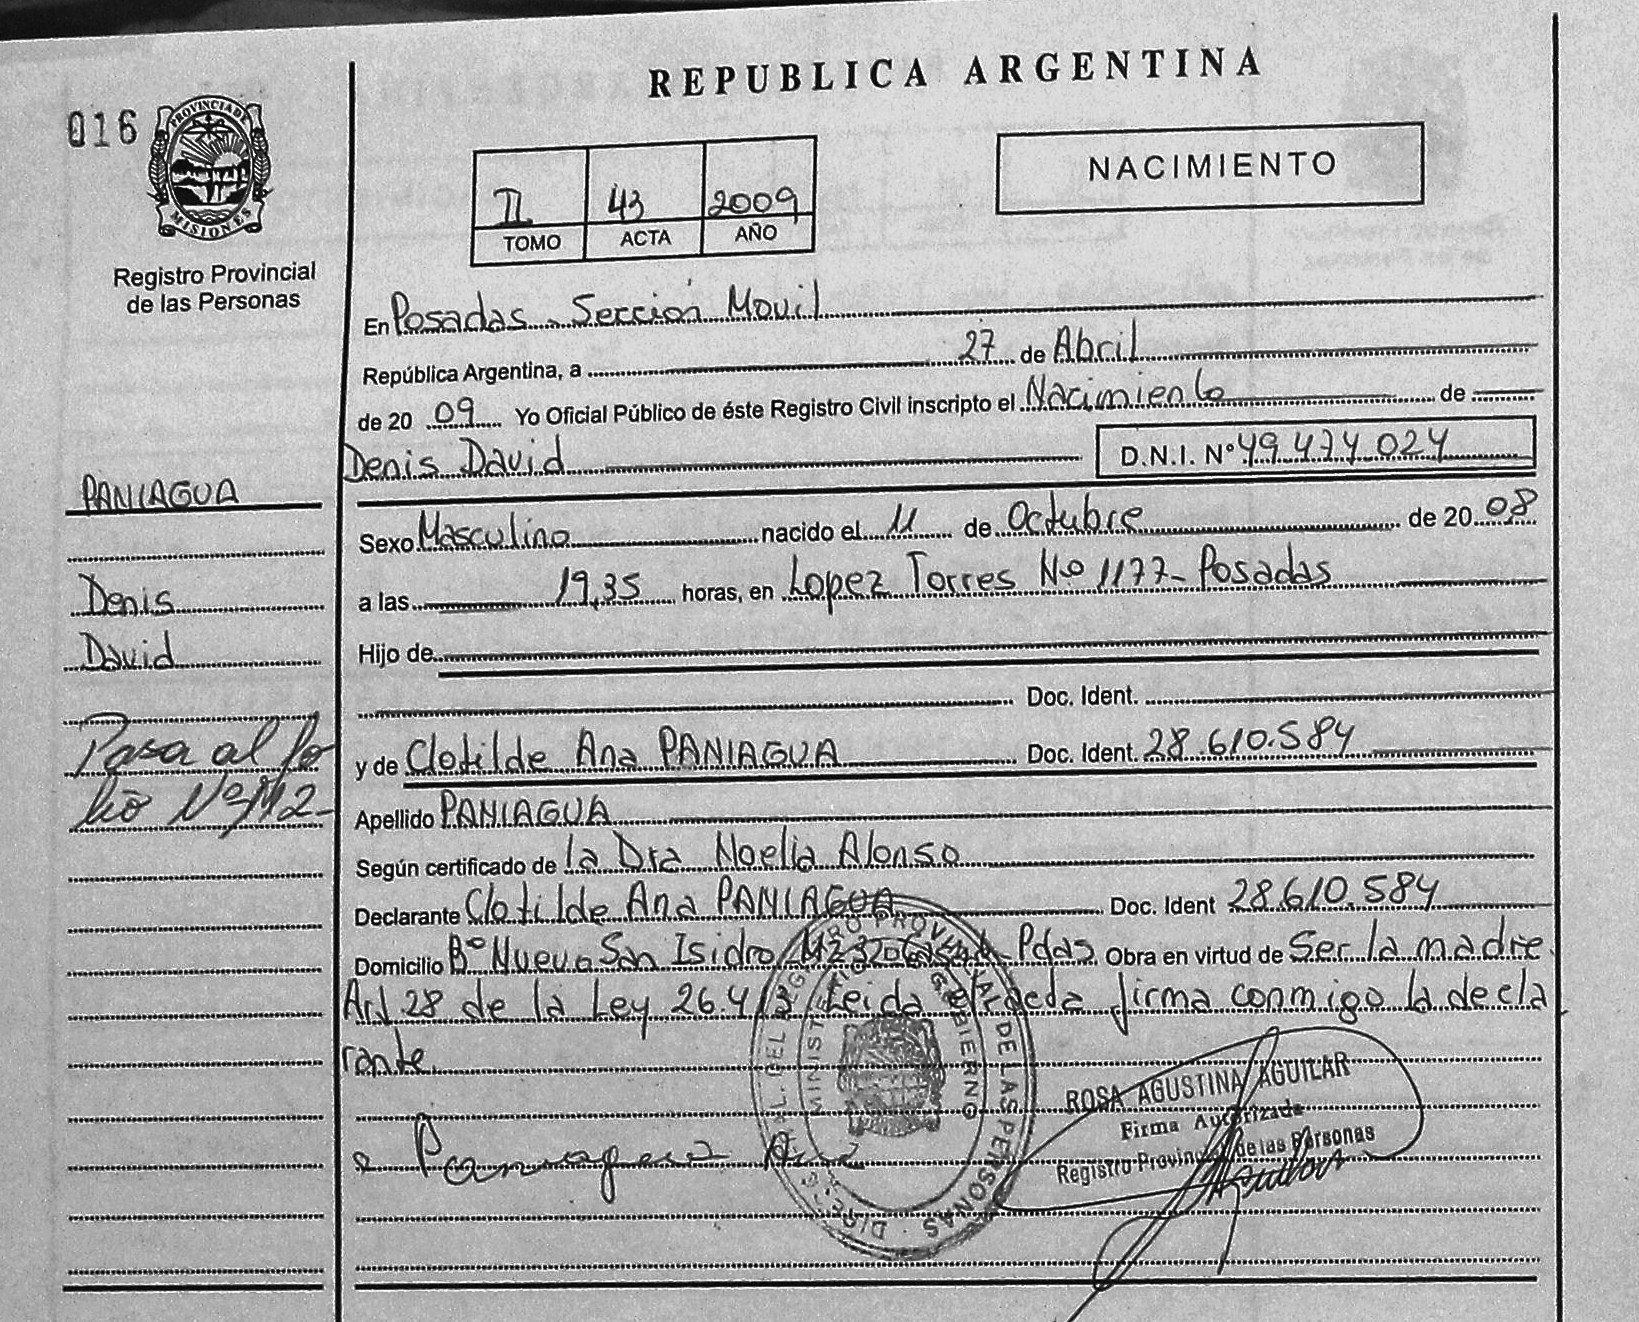 REPUBLICA ARGENTINA
016
PROVINCIA DE
MISIONES
Registro Provincial
de las Personas
II 43 2009
TOMO ACTA AÑO
NACIMIENTO
En Posadas - Sección Movil
República Argentina, a 27 de Abril
de 20 09 Yo Oficial Público de éste Registro Civil inscripto el Nacimiento de
Denis David D.N.I. Nº 49.474.024
PANIAGUA
Denis
David
Pasa al fo
lio Nº 112-
Sexo Masculino nacido el 11 de Octubre de 20 08
a las 19,35 horas, en Lopez Torres Nº 1177- Posadas
Hijo de
Doc. Ident.
y de Clotilde Ana PANIAGUA Doc. Ident. 28.610.584
Apellido PANIAGUA
Según certificado de la Dra Noelia Alonso
Declarante Clotilde Ana PANIAGUA Doc. Ident 28.610.584
Domicilio Bº Nuevo San Isidro Mz 320 Casa Pdas. Obra en virtud de Ser la madre.
Art 28 de la Ley 26.413 Leida el acta firma conmigo la decla
rante.
Paniagua Ana
DIREC. GRAL. DEL REGISTRO PROVINCIAL DE LAS PERSONAS
MINISTERIO GOBIERNO
ROSA AGUSTINA AGUILAR
Firma Autorizada
Registro Provincial de las Personas